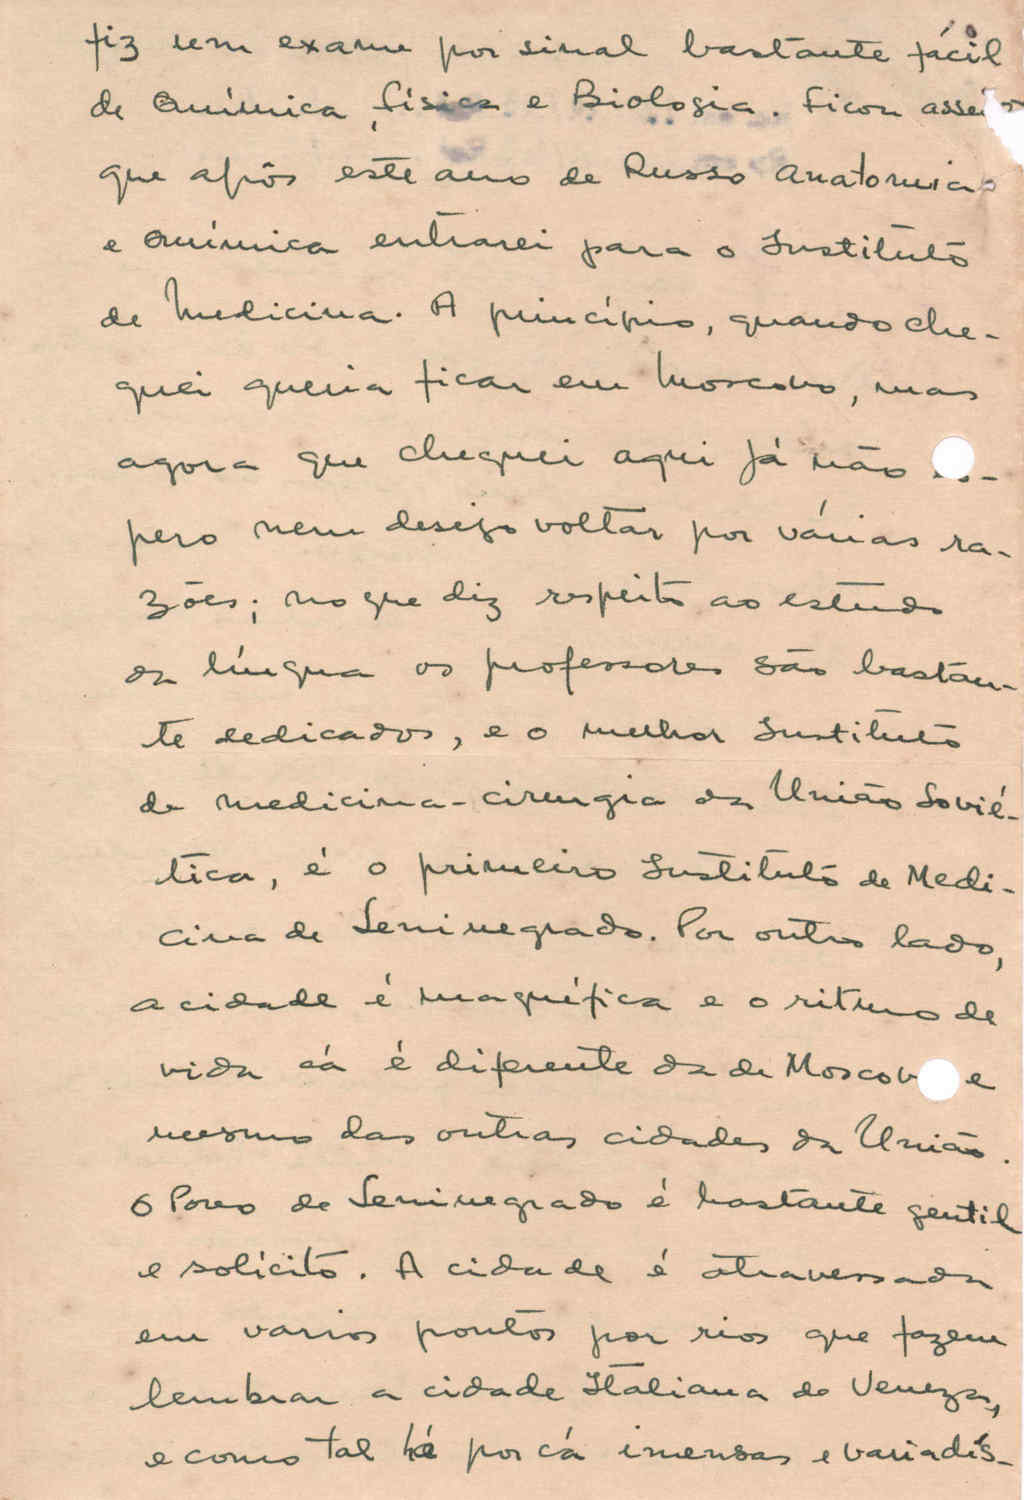 fiz um exame por sinal bastante fácil
de Química, física e Biologia. Ficou
que após este ano de Russo Anatomia
e Química entrarei para o Instituto
de Medicina. A princípio, quando che-
guei queria ficar em Moscovo, mas
agora que cheguei aqui já não es-
pero nem desejo voltar por várias ra-
zões; no que diz respeito ao estudo
da língua os professores são bastan-
te dedicados, e o melhor Instituto
de medicina-cirurgia da União Sovié-
tica, é o primeiro Instituto de Medi-
cina de Leninegrado. Por outro lado,
a cidade é magnífica e o ritmo de
vida cá é diferente da de Moscovo e
mesmo das outras cidades da União.
O Povo de Leninegrado é bastante gentil
e solícito. A cidade é atravessada
em varios pontos por rios que fazem
lembrar a cidade Italiana de Veneza,
e como tal há por cá imensas e variadís-